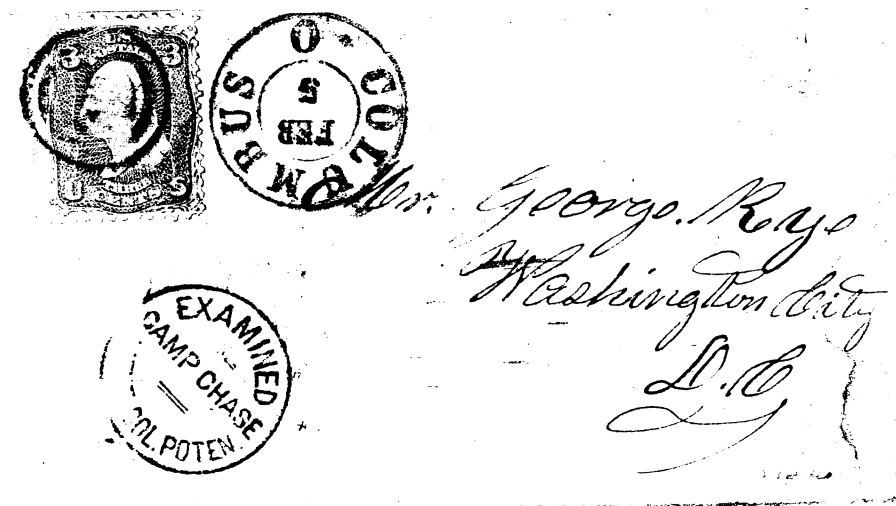 3 U.S. 3
POSTAGE
U S
COLUMBUS O.
FEB
5
Mr. George. Rye
Washington City
D.C
EXAMINED
CAMP CHASE
COL. POTEN.